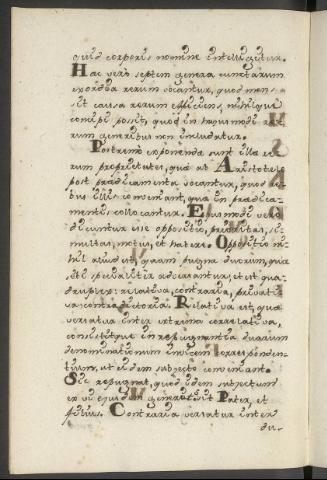 quid corporis nomine intelligitur.
Hac vero septem genera cunctarum
exordia rerum vocantur, quod men-
sit causa rerum efficiens, nihilque
concipi possit, quod in hujusmodi re-
rum generibus non includatur.
Postremo exponenda sunt illa re-
rum proprietates, quæ ab Aristotele
post prædicamenta vocantur, quod re-
bus illis conveniant, quæ in prædica-
mentis collocantur. Ejusmodi vero
dicuntur esse oppositio, prioritas, si-
multas, motus, et habere. Oppositio ni-
hil aliud est, quam pugna duorum, quæ
sibi peculiariter adversantur; et est qua-
druplex: relativa, contraria, privati-
va, contradictoria. Relativa est, quæ
versatur inter extrema correlativa,
consistitque in repugnantia duarum
denominationum invicem corresponden-
tium, ut eidem subjecto conveniant.
Sic repugnat, quod idem subjectum
ex vi ejusdem generat: sit Pater, et
filius. Contraria versatur inter
du-